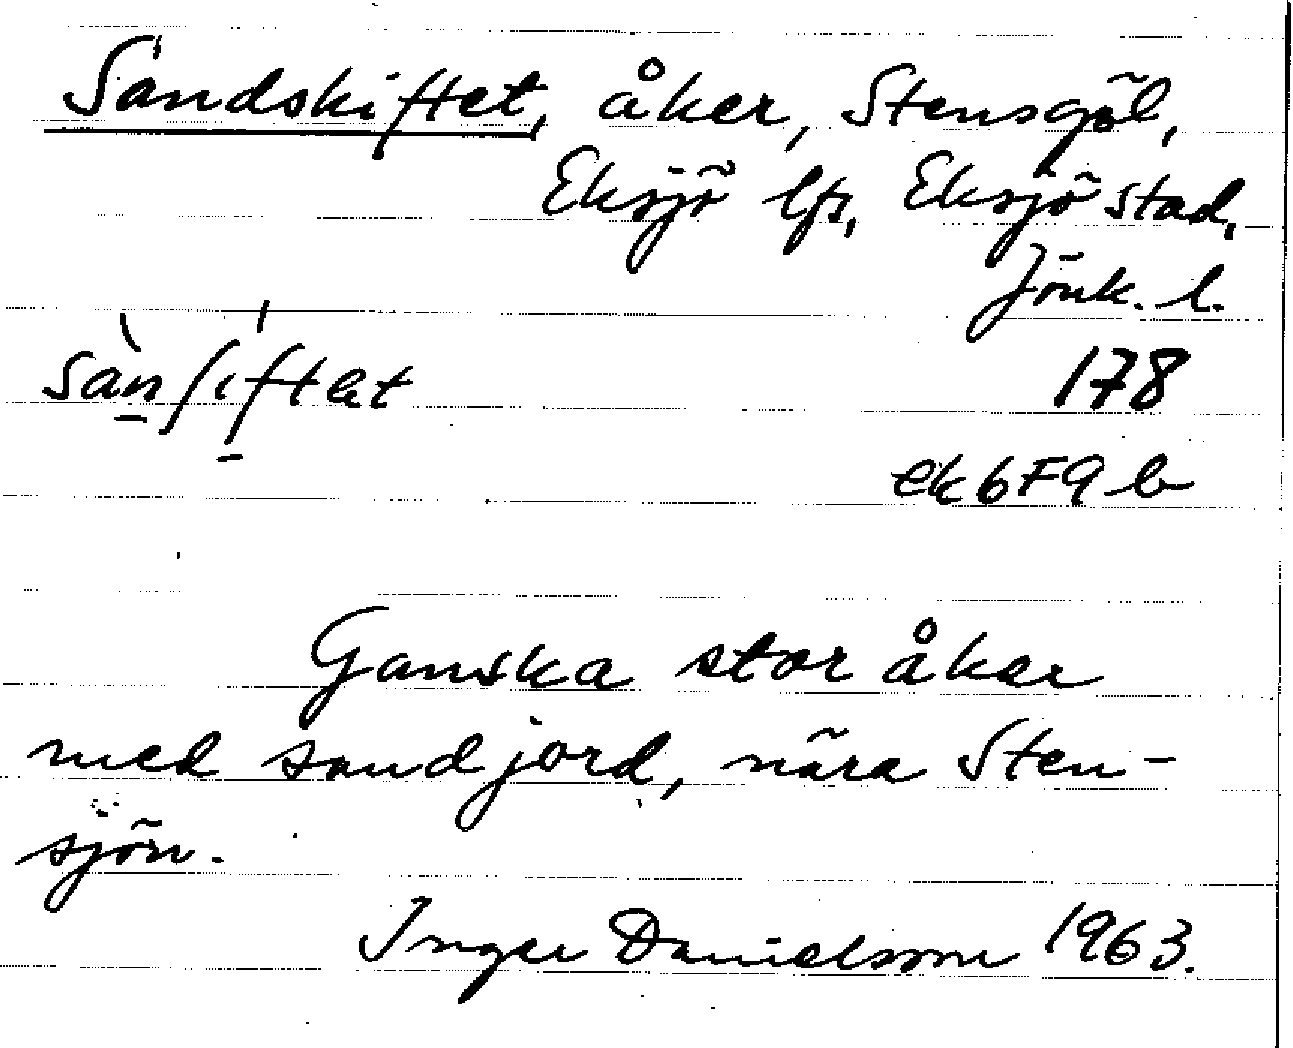 Sandskiftet, åker, Stensgöl,
Eksjö lfs, Eksjö stad,
Jönk. l.
sànʃiftet
178
ek 6F9 b
Ganska stor åker
med sandjord, nära Sten-
sjön.
Inger Danielsson 1963.